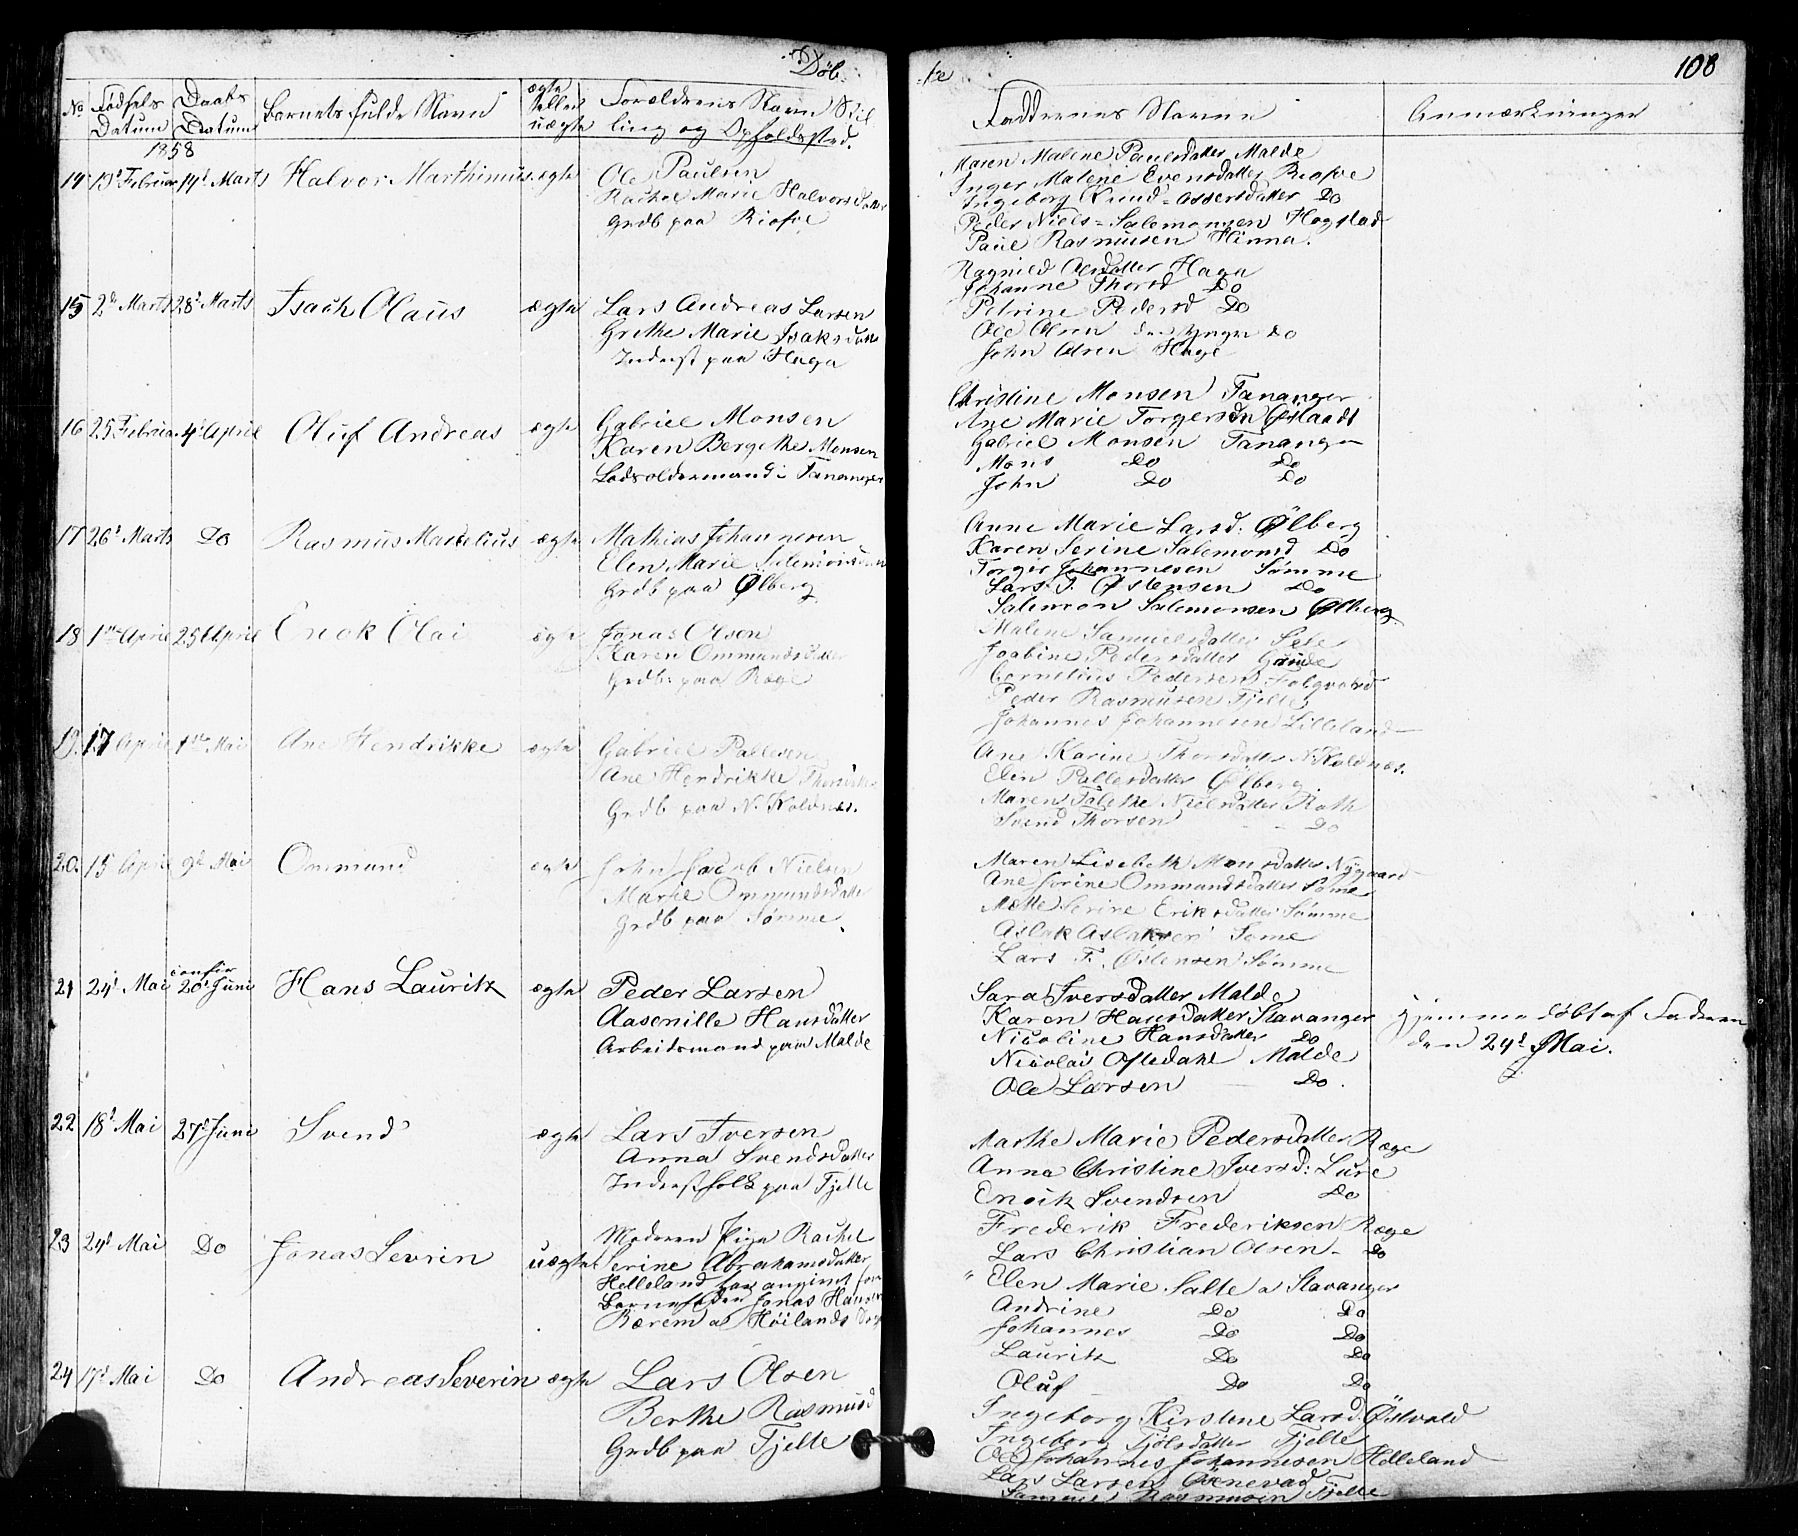 Døb-
No
Fødsels Datum
Daabs Datum
Barnets fulde Navn
ægte eller uægte
Forældrenes Navn Stilling og Opholdssted.
1858
14
13d Februar
14d Marts
Halvor Marthinus
ægte
Ole Paulsen
Rachel Marie Halvorsdatter
Grdb paa
15
2d Marts
28d Marts
Isach Olaus
ægte
Lars Andreas Larsen
Grethe Marie Isaksdatter
Inderst paa Haga
16
25 Februar
4d April
Oluf Andreas
ægte
Gabriel Monsen
Karen Bergethe Monsen
Lodsoldermand i Tananger
17
26d Marts
Do
Rasmus Martelius
ægte
Mathias Johannesen
Elen Marie
Grdb paa Ølberg
18
1ste April
25 April
Enok Olai
ægte
Jonas Olsen
Karen Ommundsdatter
Grdb: paa Ræge
19.
17 April
1ste Mai
Ane Hendrikke
ægte
Gabriel Pallesen
Ane Hendrikke
Grdb paa N. Kolnes.
20.
15 April
9d Mai
Ommund
ægte
John Jacob Nielsen
Marie Ommundsdatter
Grdb paa Sømme.
21
24d Mai
confir
20d Juni
Hans Lauritz
ægte
Peder Larsen
Aasenille Hansdatter
Arbeidsmand paa Malde
22
18d Mai
27d Juni
Svend
ægte
Lars Iversen
Anna Svendsdatter
Inderstfolk paa Tjelte
23
24d Mai
Do
Jonas Sevrin
uægte
Moderen Pige Rachel
Serine Abrahamsdatter
Helleland har angivet som
Barnefader Jonas Hansen
Bærem a Høilands
24
17d Mai
Do
Andreas Severin
ægte
Lars Olsen
Berthe Rasmusd
Grdb paa Tjelte
te
108
Faddernes Navne
Anmærkninger
Maren Malene Paulsdatter Malde
Inger Malene Evensdatter
Ingeborg Knud-Assersdatter Do
Peder Niels-Salemonsen Hogstad
Paul Rasmusen Hinna.
Ragnild Olsdatter Haga
Johanne Thorsd Do
Petrine Pedersd Do
Ole Olsen den Yngre Do
John Olsen Hage
Christine Monsen Tananger
Ane Marie Torgersdn
Gabriel Monsen Tananger
Mons Do Do
John Do Do
Anne Marie Larsd: Ølberg
Karen Serine Salemonsd Do
Torger Johannesen Sømme
Lars T. Østensen Do
Salemon Salemonsen Ølberg
Malene Samuelsdatter Sele
Joabine Pedersdatter
Cornelius Pedersen
Peder Rasmusen Tjelte
Johannes Johannesen Lilleland
Ane Karine Thorsdatter N. Kolnes.
Elen Pallesdatter Ølberg
Maren Talethe Nielsdatter Roth
Svend Thorsen Do
Maren Lisebeth Monsdatter Nygaard
Ane Serine Ommundsdatter Sømme
Mette Serine Eriksdatter Sømme
Aslak Aslaksen Sømme
Lars T. Østensen Sømme
Sara Iversdatter Malde
Karen Hansdatter Stavanger
Nicoline Hansdatter Do
Nicolai Oftedahl Malde
Ole Larsen Do
hjemmedøbt af Faderen
den 24d Mai.
Marthe Marie Pedersdatter Ræge
Anna Christine Iversd: Lure
Enok Svendsen Do
Frederik Frederiksen Ræge
Lars Christian Olsen Do
Elen Marie Salte a Stavanger
Andrine Do Do
Johannes Do Do
Lauritz Do Do
Oluf Do Do
Ingeborg Kirstine Larsd.
Ingeborg Tjølsdatter Tjelte
Ole Johannes Johannesen Helleland
Lars Larsen
Rasmusen Tjelte